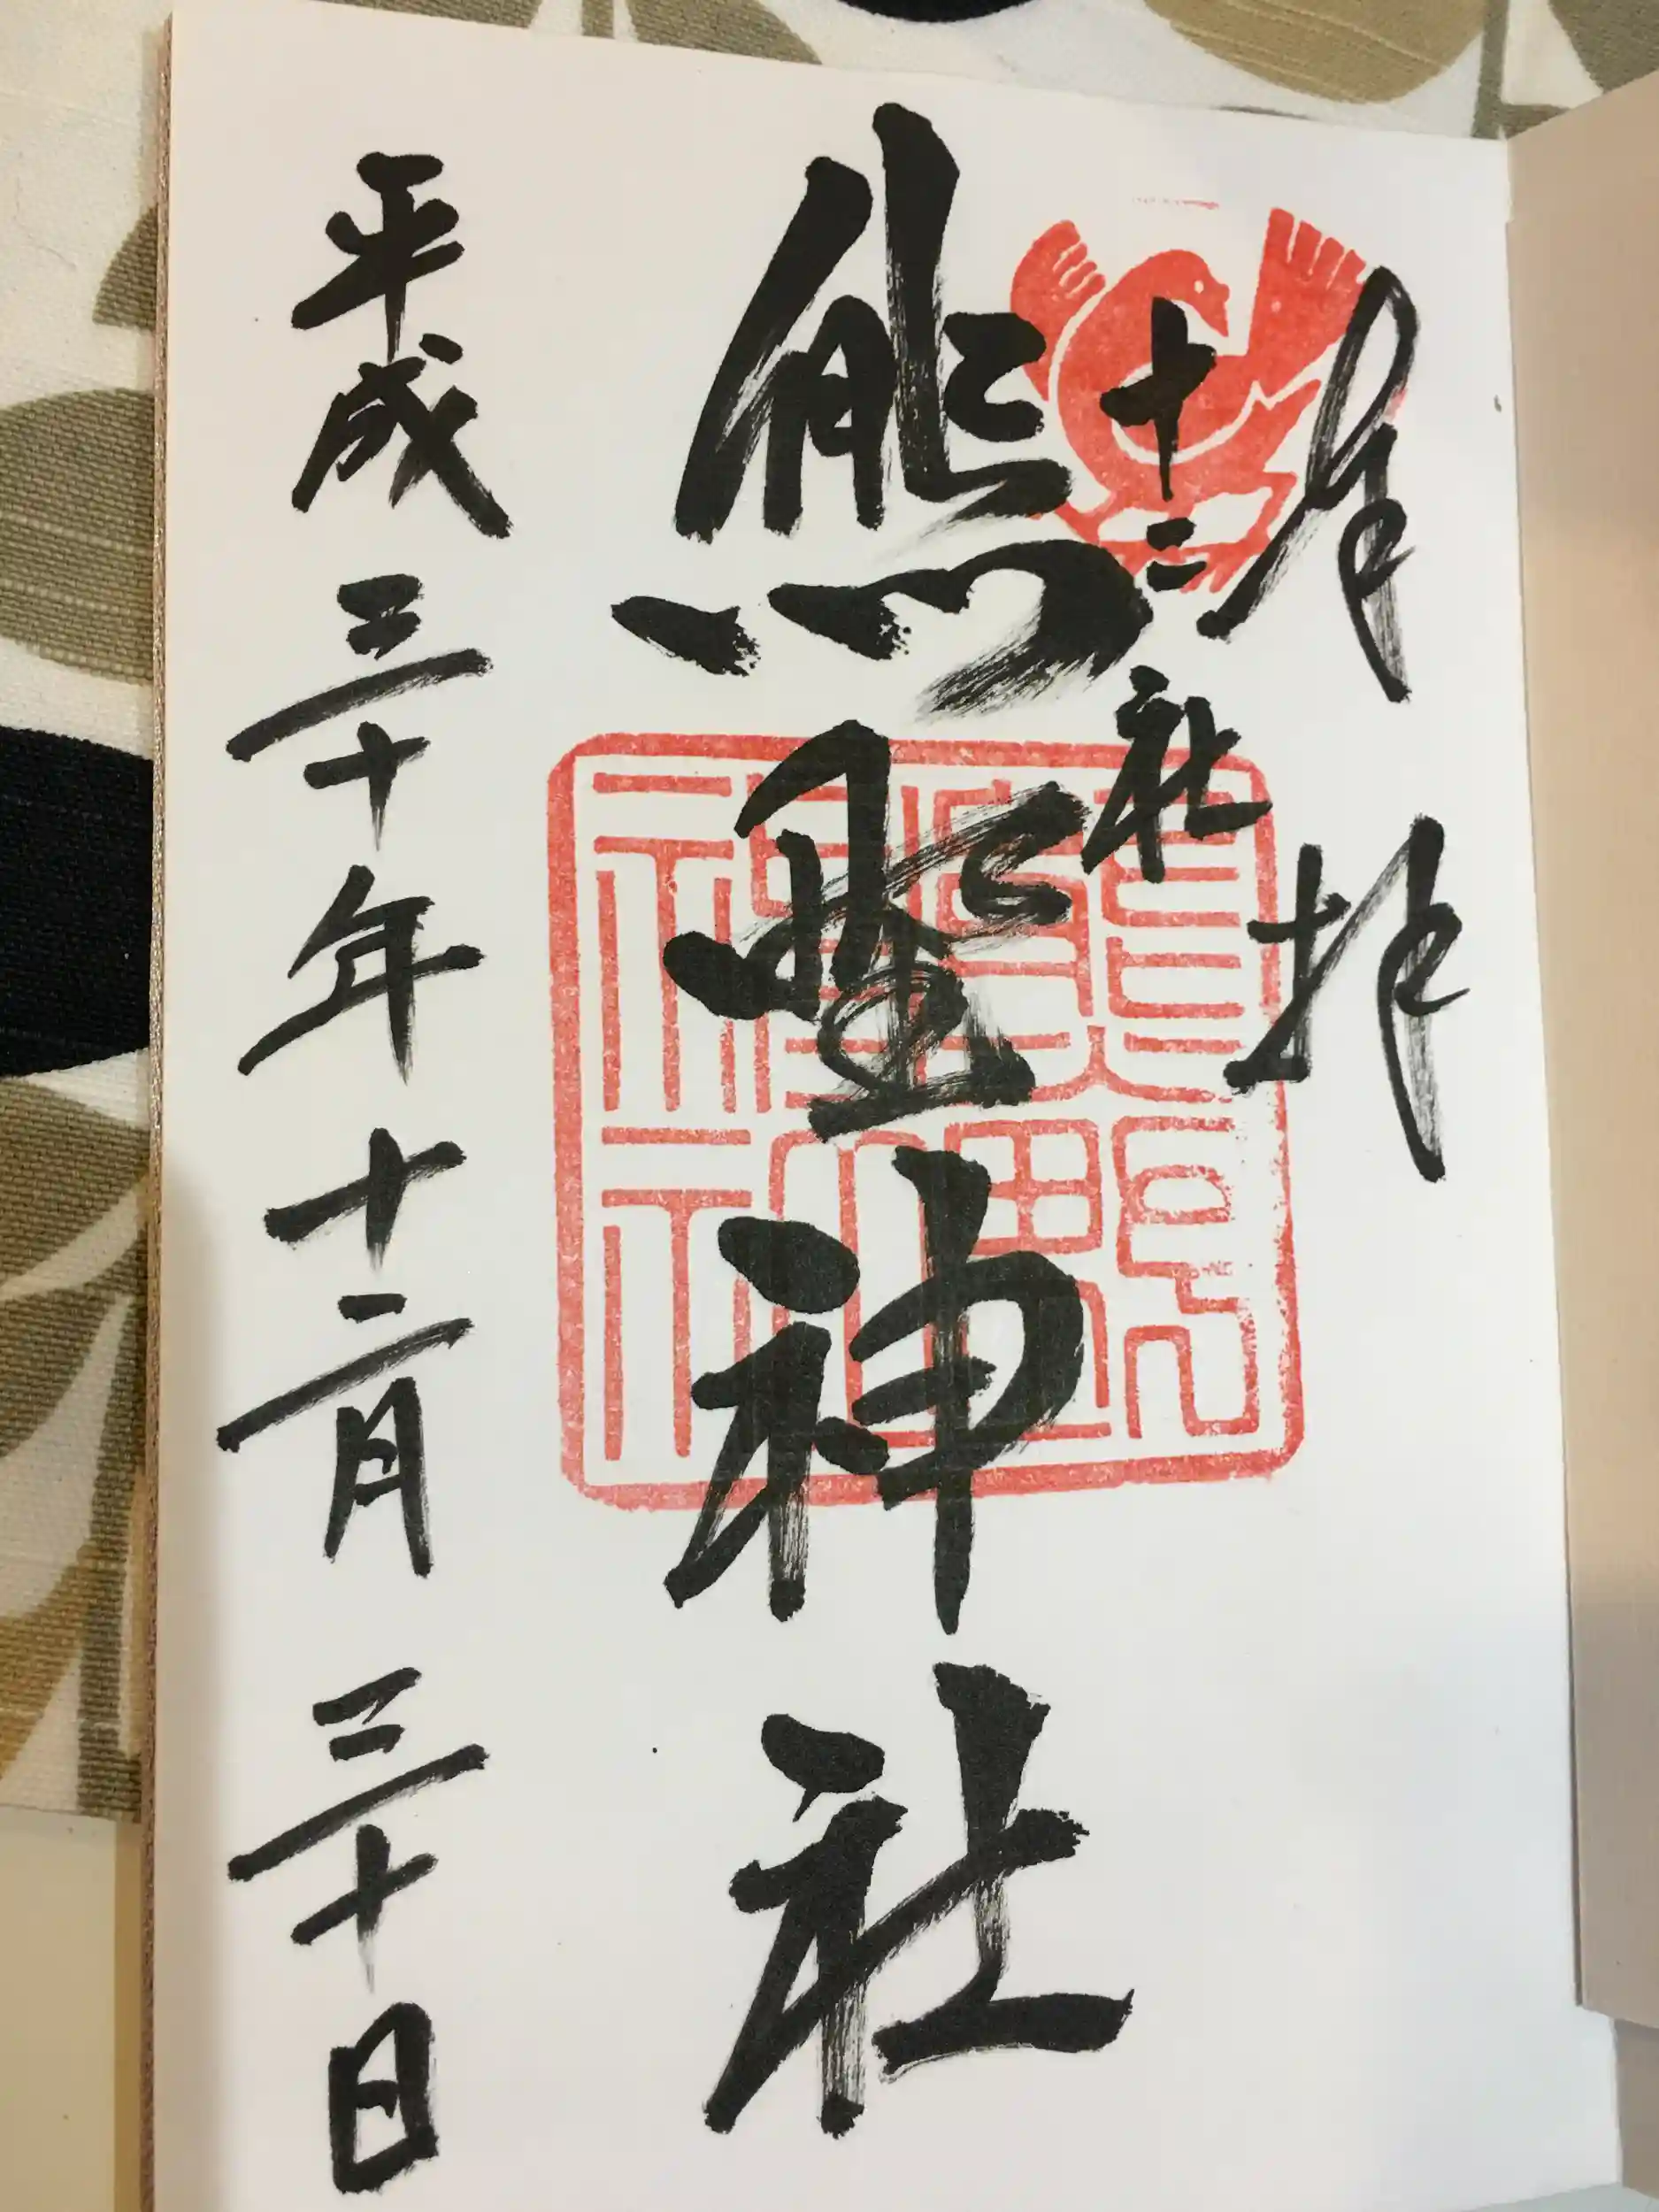 奉拝
十二社
熊野神社
平成三十年十二月三十日